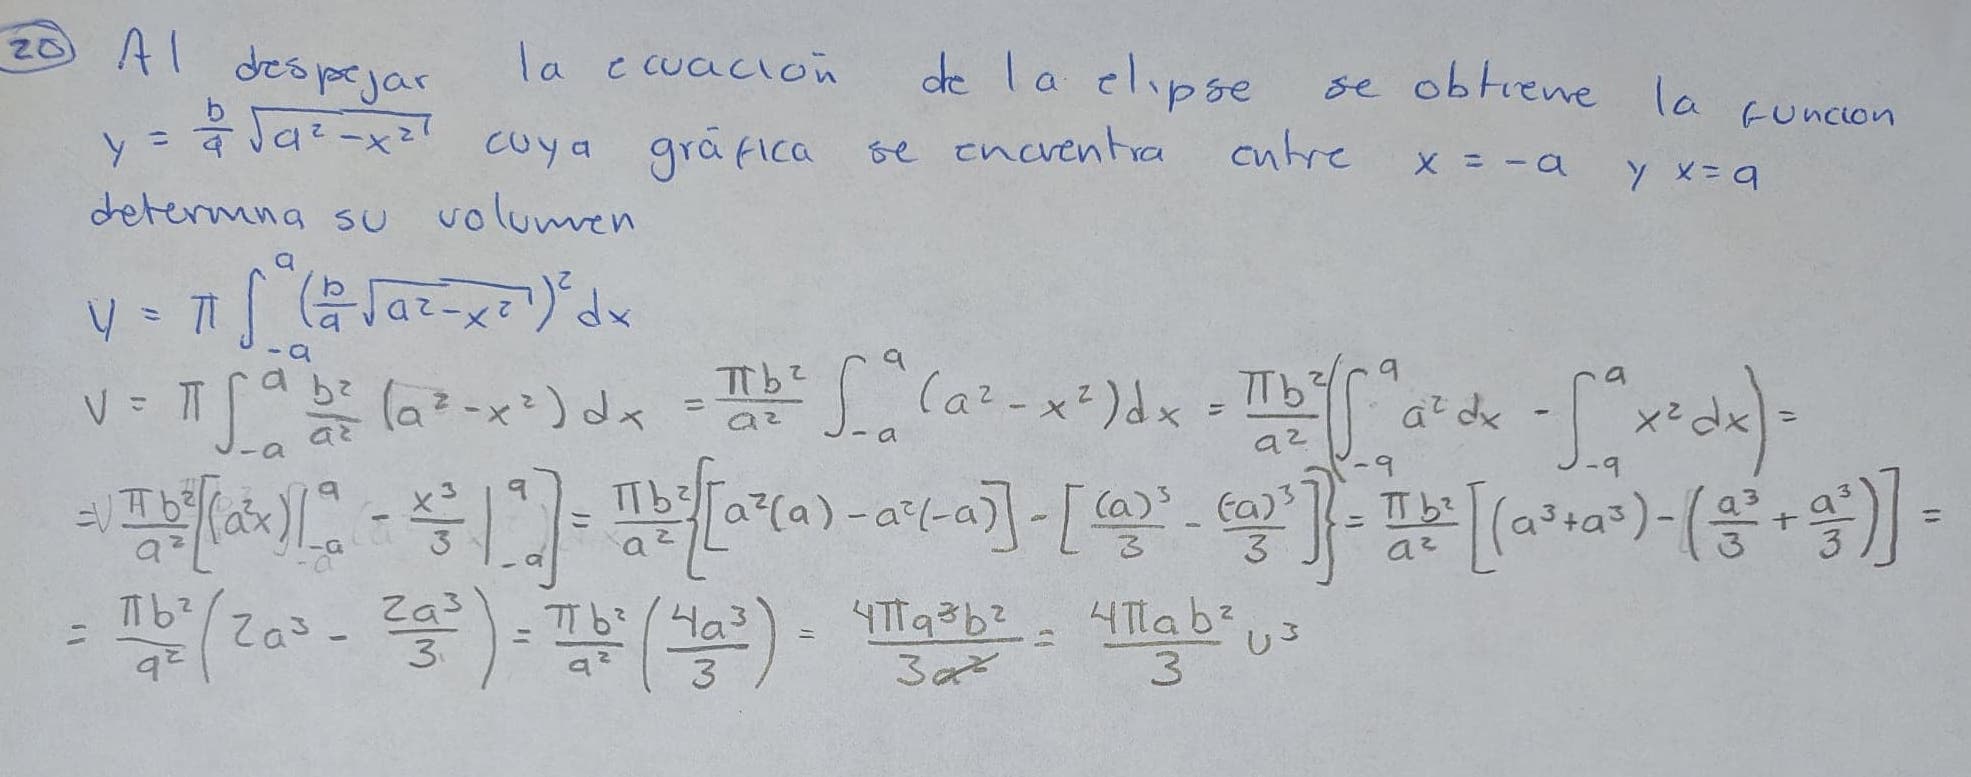 20 Al despejar la ecuación de la elipse se obtiene la función
y = b/a √(a² - x²) cuya gráfica se encuentra entre x = -a y x = a
determina su volumen
V = π ∫_{-a}^{a} (b/a √(a² - x²))² dx
V = π ∫_{-a}^{a} b²/a² (a² - x²) dx = πb²/a² ∫_{-a}^{a} (a² - x²) dx = πb²/a² (∫_{-a}^{a} a² dx - ∫_{-a}^{a} x² dx) =
= πb²/a² [(a²x)|_{-a}^{a} - x³/3 |_{-a}^{a}] = πb²/a² {[a²(a) - a²(-a)] - [(a)³/3 - (-a)³/3]} = πb²/a² [(a³ + a³) - (a³/3 + a³/3)] =
= πb²/a² (2a³ - 2a³/3) = πb²/a² (4a³/3) = 4πa³b²/3a² = 4πab²/3 u³